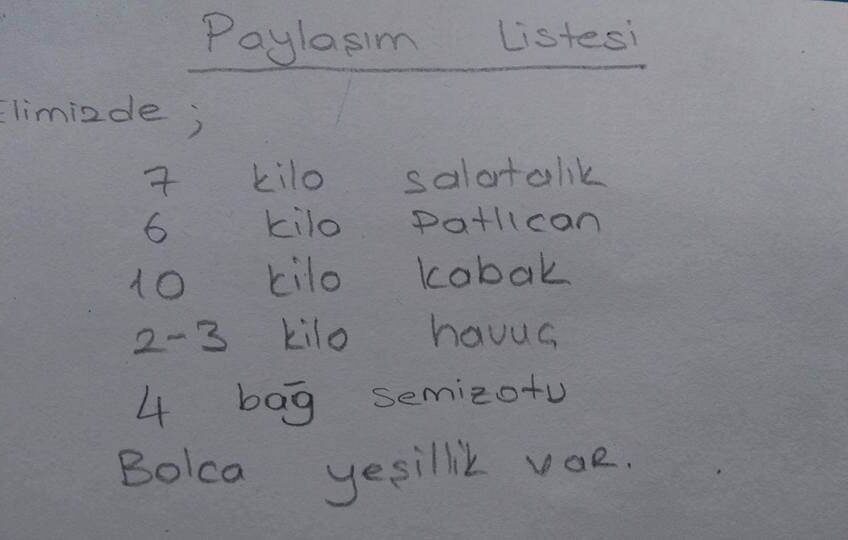 Paylaşım Listesi
Elimizde ;
7 kilo salatalık
6 kilo Patlıcan
10 kilo kabak
2-3 kilo havuç
4 bağ semizotu
Bolca yeşillik var.